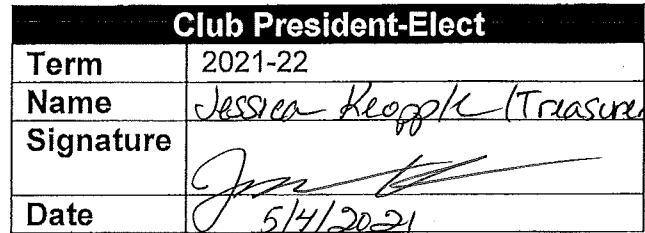 Club President-Elect
Term 2021-22
Name Jessica Keopple (Treasurer
Signature
Date 5/4/2021